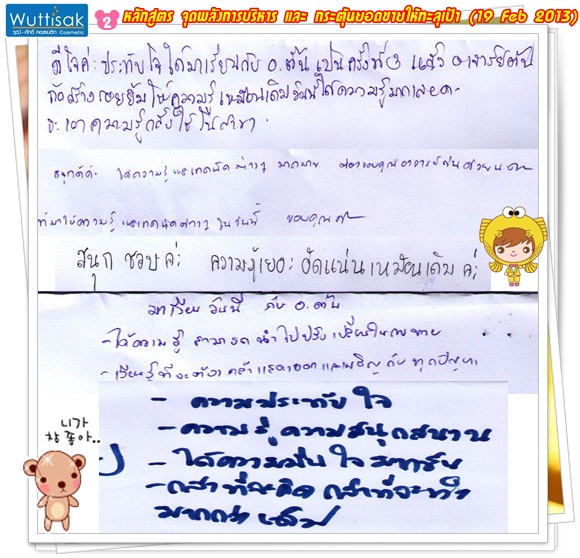 Wuttisak
วุฒิ-ศักดิ์ คอสเมติก Cosmetic
2 หลักสูตร จุดพลังการบริหาร และ กระตุ้นยอดขายให้ทะลุเป้า (19 Feb 2013)
ดีใจค่ะ ประทับใจ ได้มาเรียนกับ อ.ตั้น เป็นครั้งที่ 3 แล้ว อาจารย์ตั้น
ก็สร้างรอยยิ้ม ให้ความรู้ เหมือนเดิม วันนี้ได้ความรู้มากเลยค่ะ
จะเอาความรู้กลับไปใช้ในสาขา
สนุกดีค่ะ ได้ความรู้ และเทคนิคต่างๆ มากมาย ขอขอบคุณอาจารย์
ที่มาให้ความรู้ และเทคนิคต่างๆ ในวันนี้ ขอบคุณค่ะ
สนุก ชอบค่ะ ความรู้เยอะ อัดแน่นเหมือนเดิมค่ะ
มาเรียนวันนี้ กับ อ.ตั้น
- ได้ความรู้ สามารถนำไปปรับเปลี่ยนในการขาย
- เรียนรู้ที่จะต้องกล้าแสดงออกและเผชิญกับทุกปัญหา
- ความประทับใจ
- ความรู้ ความสนุกสนาน
- ได้ความมั่นใจมากขึ้น
- กล้าที่จะคิด กล้าที่จะทำ
มากกว่าเดิม
니가
참 좋아..